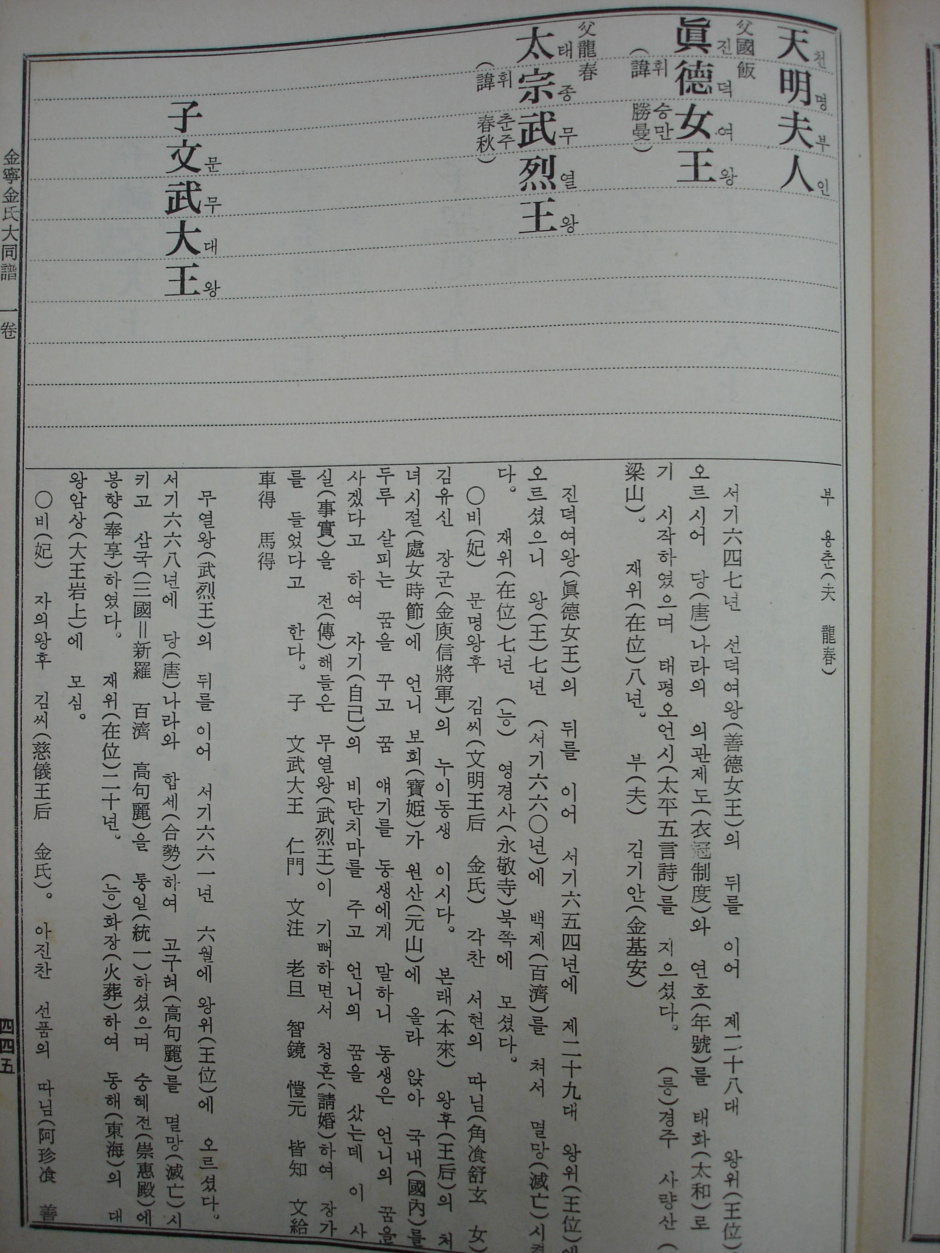 天明夫人
천명부인
父國飯
眞德女王
진덕여왕
(諱 勝曼)
휘 승만
父龍春
太宗武烈王
태종무열왕
(諱 春秋)
휘 춘주
子文武大王
문무대왕
부 용춘(夫 龍春)
서기六四七년 선덕여왕(善德女王)의 뒤를 이어 제二十八대 왕위(王位)에
오르시어 당(唐)나라의 의관제도(衣冠制度)와 연호(年號)를 태화(太和)로
기 시작하였으며 태평오언시(太平五言詩)를 지으셨다。 (릉)경주 사량산(
梁山)。 재위(在位)八년。 부(夫) 김기안(金基安)
진덕여왕(眞德女王)의 뒤를 이어 서기六五四년에 제二十九대 왕위(王位)에
오르셨으니 왕(王)七년 (서기六六〇년)에 백제(百濟)를 쳐서 멸망(滅亡)시켰
다。 재위(在位)七년 (능) 영경사(永敬寺)북쪽에 모셨다。
〇비(妃) 문명왕후 김씨(文明王后 金氏) 각찬 서현의 따님(角飡舒玄 女)
김유신 장군(金庾信將軍)의 누이동생 이시다。 본래(本來) 왕후(王后)의 처
녀시절(處女時節)에 언니 보희(寶姬)가 원산(元山)에 올라 앉아 국내(國內)를
두루 살피는 꿈을 꾸고 꿈 얘기를 동생에게 말하니 동생은 언니의 꿈을
사겠다고 하여 자기(自己)의 비단치마를 주고 언니의 꿈을 샀는데 이 사
실(事實)을 전(傳)해들은 무열왕(武烈王)이 기뻐하면서 청혼(請婚)하여 장가
를 들었다고 한다。 子 文武大王 仁門 文注 老旦 智鏡 愷元 皆知 文給
車得 馬得
무열왕(武烈王)의 뒤를 이어 서기六六一년 六월에 왕위(王位)에 오르셨다。
서기六六八년에 당(唐)나라와 합세(合勢)하여 고구려(高句麗)를 멸망(滅亡)시
키고 삼국(三國=新羅 百濟 高句麗)을 통일(統一)하셨으며 숭혜전(崇惠殿)에
봉향(奉享)하였다。 재위(在位)二十년。 (능)화장(火葬)하여 동해(東海)의 대
왕암상(大王岩上)에 모심。
〇비(妃) 자의왕후 김씨(慈儀王后 金氏)。 아진찬 선품의 따님(阿珍飡 善
金寧金氏大同譜 一卷
四四五